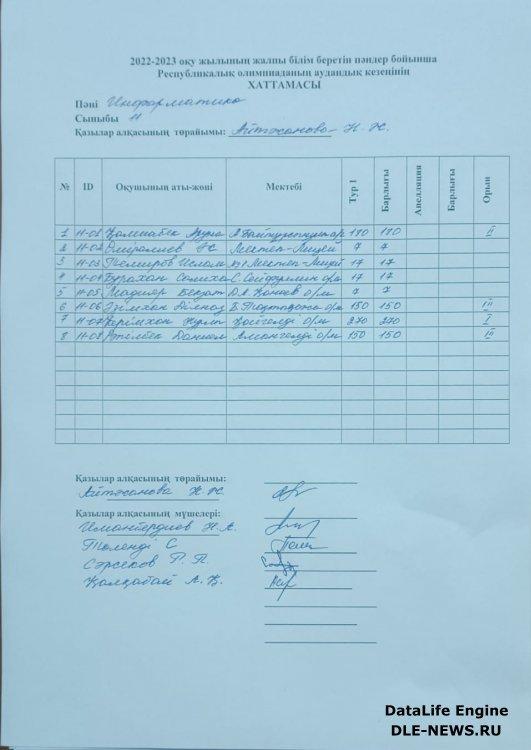 2022-2023 оқу жылының жалпы білім беретін пәндер бойынша
Республикалық олимпиаданың аудандық кезеңінің
ХАТТАМАСЫ
Пәні Информатика
Сыныбы 11
Қазылар алқасының төрайымы: Айтжанова Н.Ж.
№ ID Оқушының аты-жөні Мектебі Тур 1 Барлығы Апелляция Барлығы Орын
1 11-01 А.Байтұрсынұлы 170 170 II
2 11-02 Өмірәлиев Мектеп-Лицей 7 7
3 11-03 Темиров Ислам №1 Мектеп-Лицей 17 17
4 11-04 Бурахан Сәлиха С.Сейфуллин о/м 17 17
5 11-05 Мадияр Бекзат Д.А.Қонаев о/м 7 7
6 11-06 Әлімхан Ділназ Б. о/м 150 150 III
7 11-07 Керімхан Нұлы Қойгелді о/м 270 270 I
8 11-08 Даниал Амангелді о/м 150 150 III
Қазылар алқасының төрайымы:
Айтжанова Н.Ж.
Қазылар алқасының мүшелері:
Имантердиев Н.А.
Төленді С
Сәрсеков Р.П.
Қалқабай А.Қ.
DataLife Engine
DLE-NEWS.RU